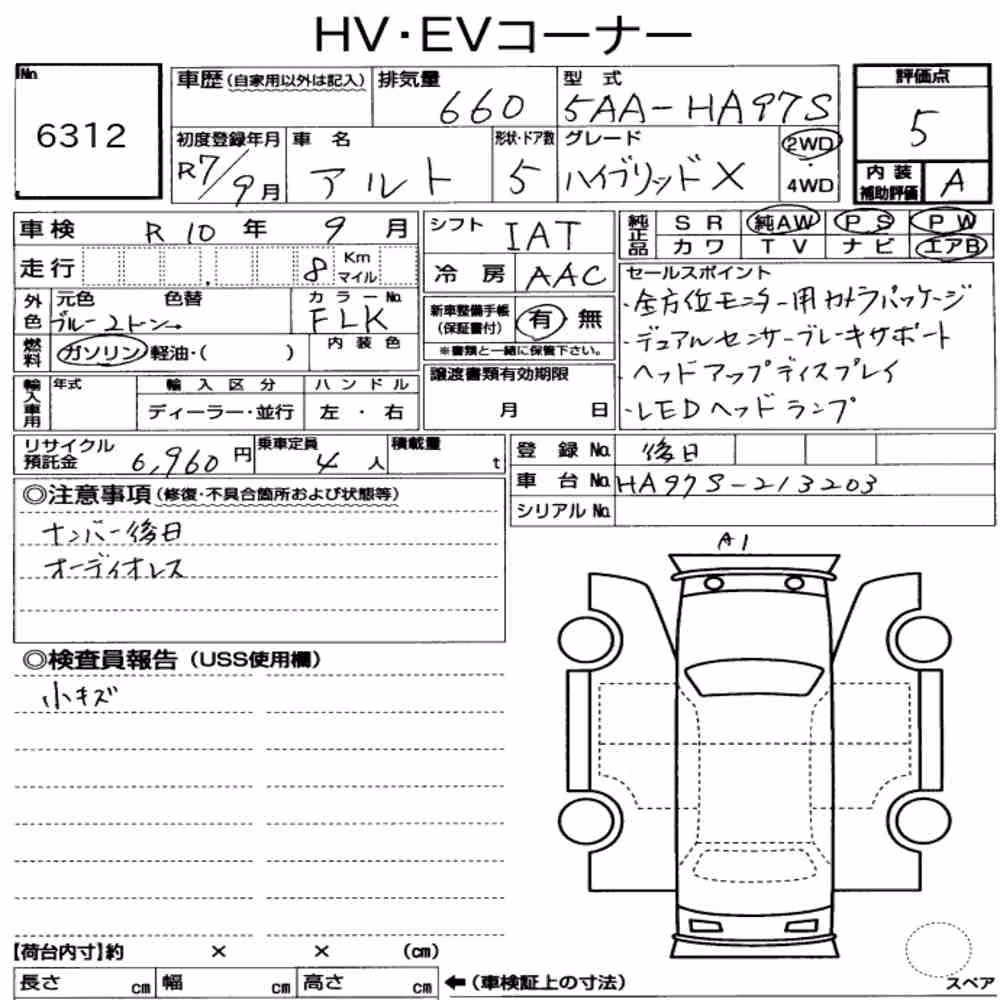 HV・EVコーナー
No. 6312
車歴 (自家用以外は記入)
排気量 660
型式 5AA-HA97S
評価点 5
初度登録年月 R7/9月
車名 アルト
形状・ドア数 5
グレード ハイブリッドX
2WD・4WD
内装補助評価 A
車検 R10年 9月
シフト IAT
純正品 SR 純AW PS PW
カワ TV ナビ エアB
走行 8 Km マイル
冷房 AAC
セールスポイント
・全方位モニター用カメラパッケージ
・デュアルセンサーブレーキサポート
・ヘッドアップディスプレイ
・LEDヘッドランプ
外色 元色 ブルー2トン→ 色替
カラーNo. FLK
新車整備手帳(保証書付) 有 無
※書類と一緒に保管下さい。
燃料 ガソリン・軽油・( )
内装色
譲渡書類有効期限
月 日
輸入車用 年式 輸入区分 ハンドル
ディーラー・並行 左・右
リサイクル預託金 6,960円
乗車定員 4人
積載量 t
登録No. 後日
車台No. HA97S-213203
シリアルNo.
◎注意事項(修復・不具合箇所および状態等)
ナンバー後日
オーディオレス
A1
◎検査員報告(USS使用欄)
小キズ
【荷台内寸】約 × × (cm)
長さ cm 幅 cm 高さ cm ←(車検証上の寸法)
スペア